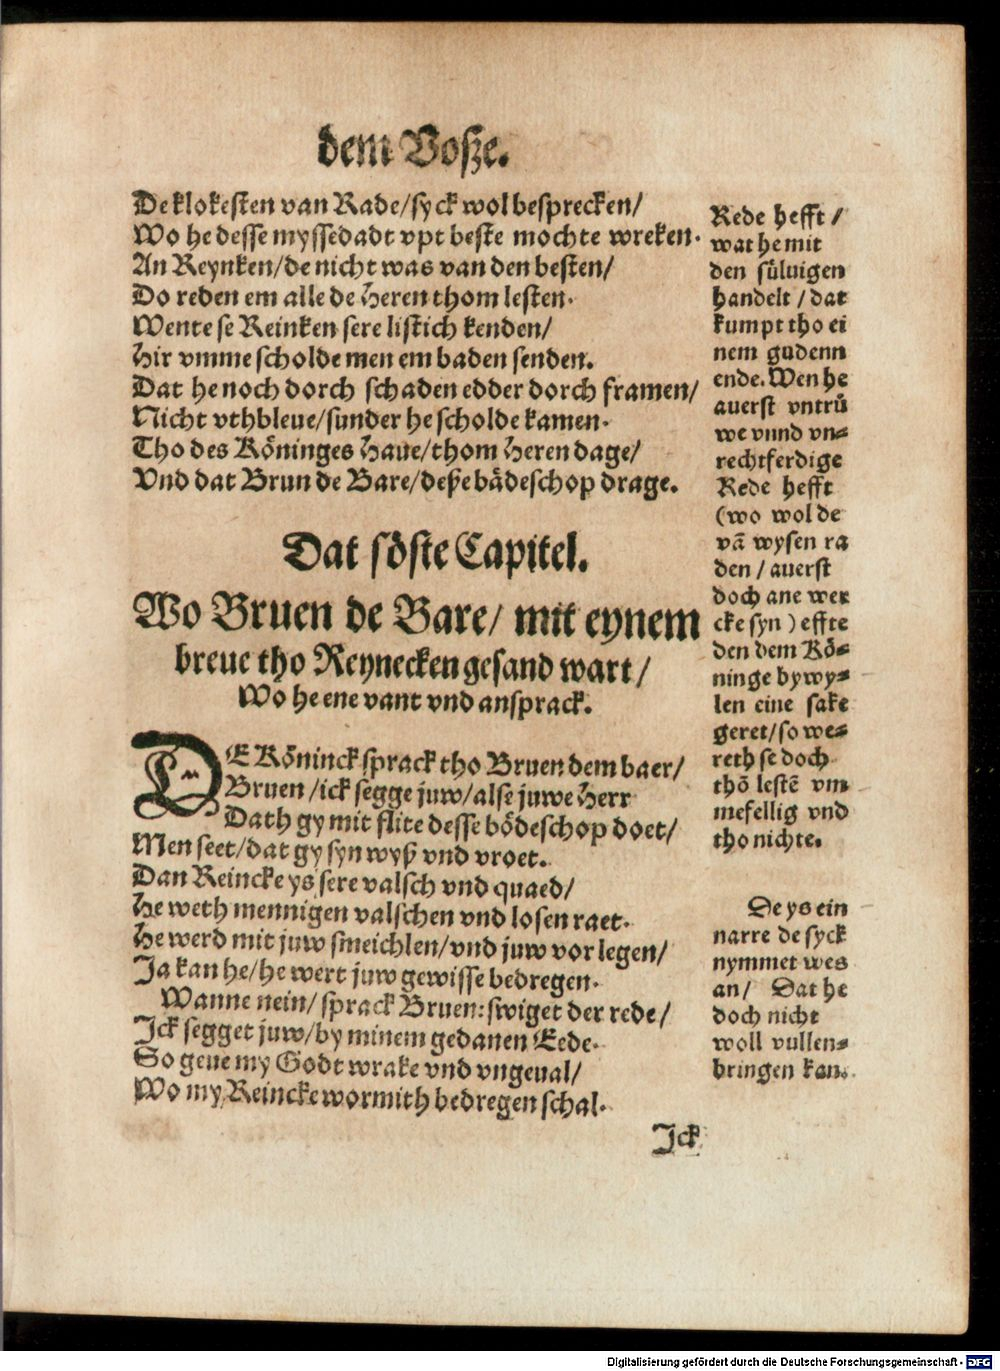 dem Voſze.
De klokeſten van Rade/ſyck wol beſprecken/
Wo he deſſe myſſedadt vpt beſte mochte wreken.
An Reynken/de nicht was van den beſten/
Do reden em alle de Heren thom leſten.
Wente ſe Reinken ſere liſtich kenden/
Hir vmme ſcholde men em baden ſenden.
Dat he noch dorch ſchaden edder dorch framen/
Nicht vthbleue/ſunder he ſcholde kamen.
Tho des Koͤninges Haue/thom Heren dage/
Vnd dat Brun de Bare/deße baͤdeſchop drage.
Dat ſoͤſte Capitel.
Wo Bruen de Bare/ mit eynem
breue tho Reynecken geſand wart/
Wo he ene vant vnd anſprack.
DE Koͤninck ſprack tho Bruen dem baer/
Bruen /ick ſegge juw/alſe juwe Herr
Dath gy mit flite deſſe boͤdeſchop doet/
Men ſeet/dat gy ſyn wyß vnd vroet.
Dan Reincke ys ſere valſch vnd quaed/
He weth mennigen valſchen vnd loſen raet.
He werd mit juw ſmeichlen/vnd juw vor legen/
Ja kan he/he wert juw gewiſſe bedregen.
Wanne nein/ ſprack Bruen: ſwiget der rede/
Ick ſegget juw/by minem gedanen Eede.
So geue my Godt wrake vnd vngeual/
Wo my Reincke wormith bedregen ſchal.
Ick
Rede hefft /
wat he mit
den ſuͤluigen
handelt / dat
kumpt tho ei
nem gudenn
ende. Wen he
auerſt vntruͤ
we vnnd vn⸗
rechtferdige
Rede hefft
(wo wol de
vã wyſen ra
den / auerſt
doch ane wer
cke ſyn ) effte
den dem Koͤ⸗
ninge by wy⸗
len eine ſake
geret/ſo we⸗
reth ſe doch
thõ leſtẽ vm
mefellig vnd
tho nichte.
De ys ein
narre de ſyck
nymmet wes
an/ Dat he
doch nicht
woll vullen⸗
bringen kan.
Digitalisierung gefördert durch die Deutsche Forschungsgemeinschaft - DFG